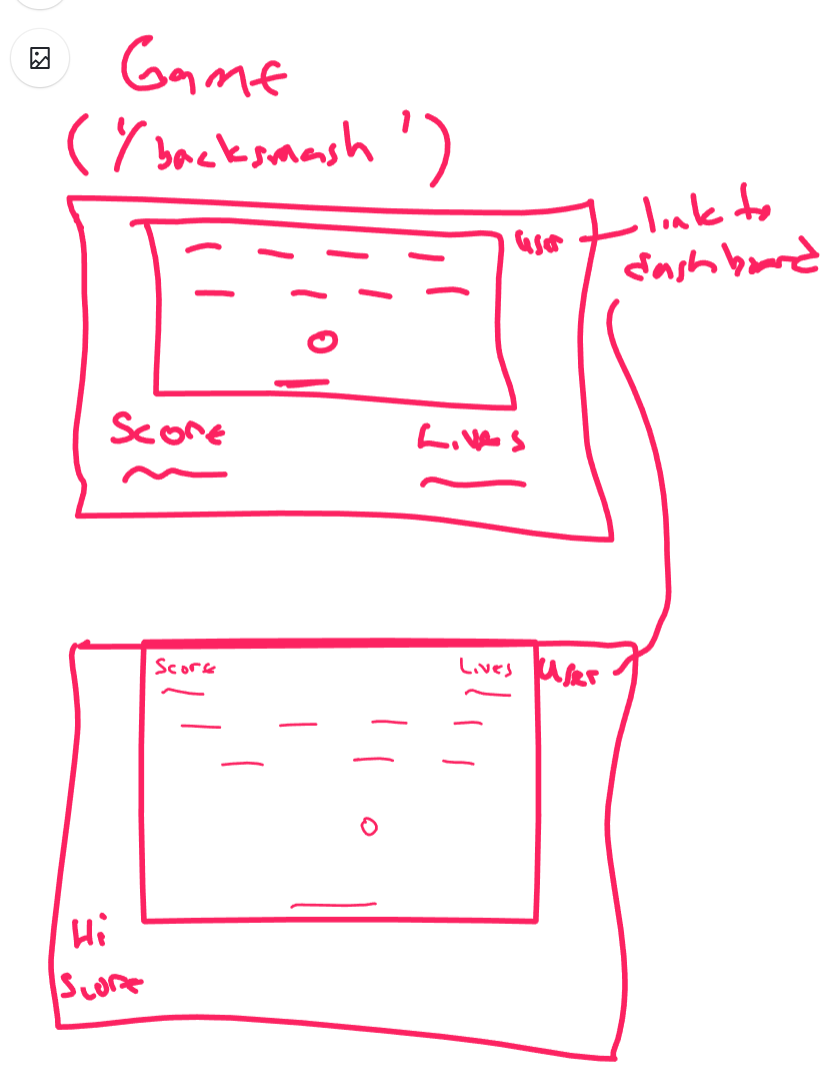 Game
('/backsmash')
User
link to
dashboard
Score
Lives
Score
Lives
User
Hi
Score